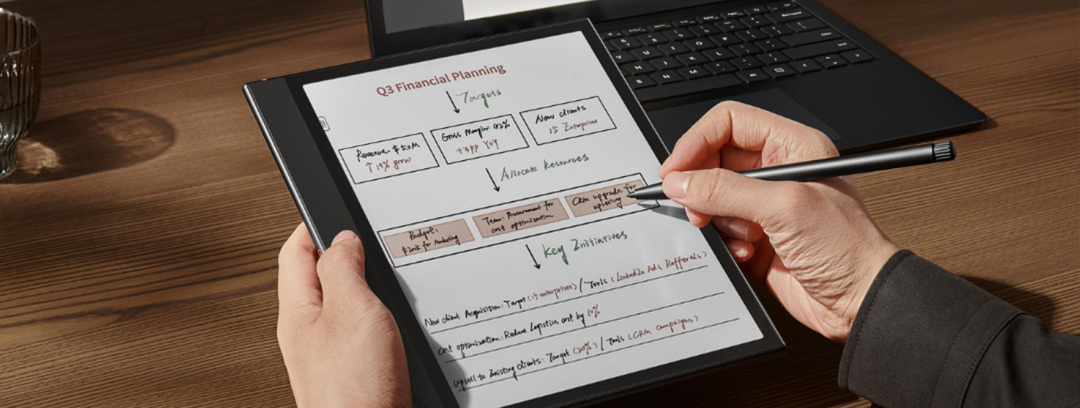 Q3 Financial Planning
Targets
Revenue: $
↑ 19% grow
Gross Margin: 42%
+3pp YoY
New clients
15 Enterprises
Allocate Resources
Budget:
for Marketing
Team: Procurement for
cost optimization
CRM upgrade for
upselling
Key Initiatives
New client Acquisition: Target (15 enterprises) / Tools (LinkedIn Ads, Refferals)
Cost optimization: Reduce Logistics cost by 10%
Upsell to Existing clients: Target (20%) / Tools (CRM campaigns)